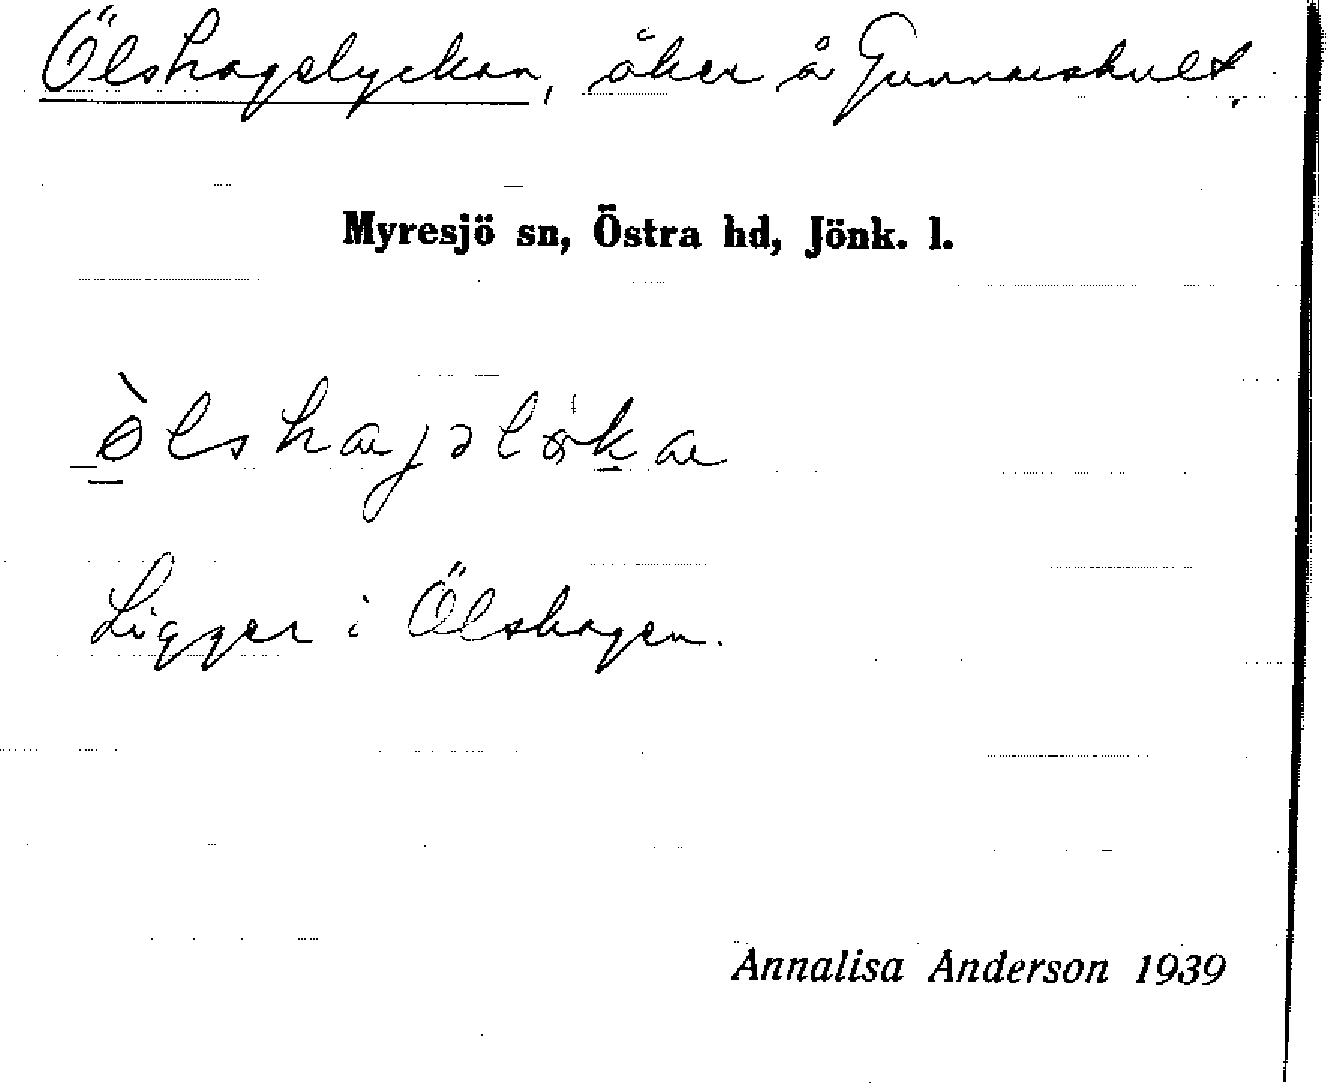 Ölshagslyckan, åker å Gunnarskult.
Myresjö sn, Östra hd, Jönk. l.
Ligger i Ölshagen.
Annalisa Anderson 1939